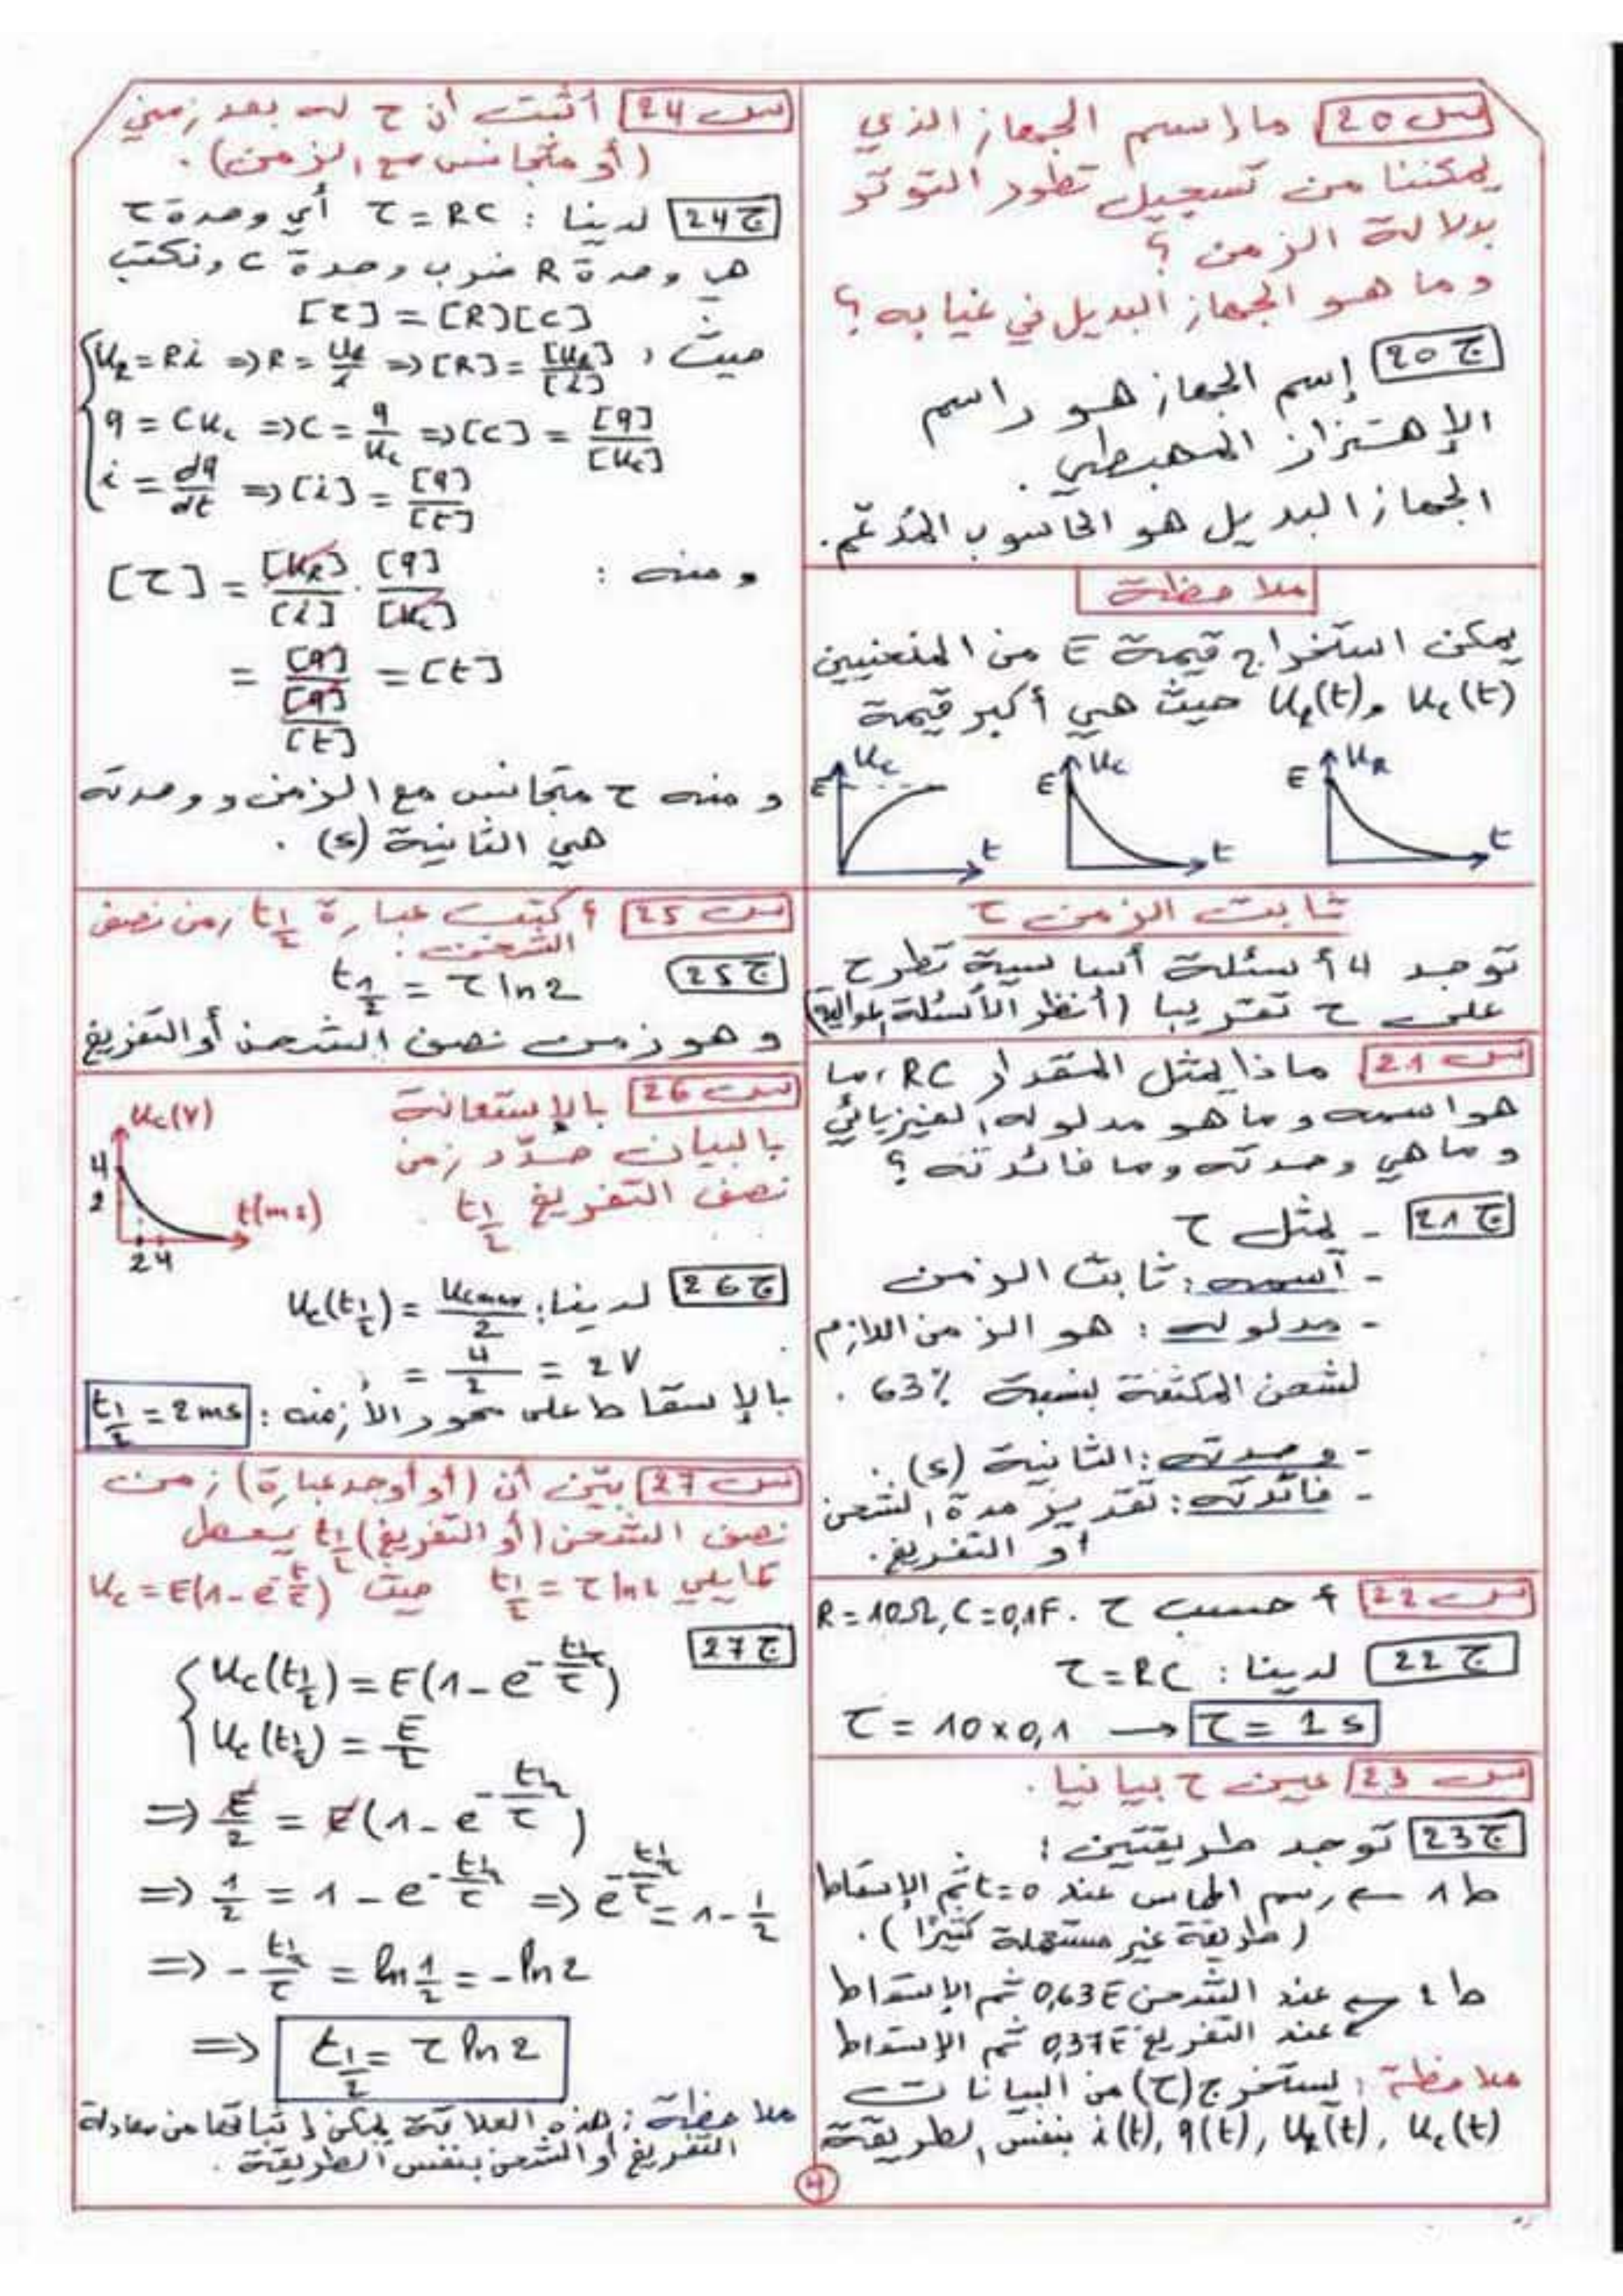 س20 ما اسم الجهاز الذي
يمكننا من تسجيل تطور التوتر
بدلالة الزمن ؟
وما هو الجهاز البديل في غيابه ؟
ج20 إسم الجهاز هو راسم
الإهتزاز المهبطي .
الجهاز البديل هو الحاسوب المدعّم.
ملاحظة
يمكن استخراج قيمة E من المنحنيين
u_c(t) و u_R(t) حيث هي أكبر قيمة
u_c E t
u_c E t
u_R E t
ثابت الزمن τ
توجد 4 أسئلة أساسية تطرح
على τ تقريبا (أنظر الأسئلة الموالية)
س21 ماذا يمثل المقدار RC، ما
هو اسمه وما هو مدلوله الفيزيائي
وما هي وحدته وما فائدته ؟
ج21 - يمثل τ
- اسمه : ثابت الزمن
- مدلوله : هو الزمن اللازم
لشحن المكثفة بنسبة 63% .
- وحدته : الثانية (s) .
- فائدته : تقدير مدة الشحن
أو التفريغ.
س22 أحسب τ . R = 10Ω, C = 0,1F
ج22 لدينا : τ = RC
τ = 10 × 0,1 → τ = 1 s
س23 عين τ بيانيا .
ج23 توجد طريقتين :
ط1 ← رسم المماس عند t = 0 ثم الإسقاط
(طريقة غير مستعملة كثيرًا) .
ط2 ← عند الشحن 0,63E ثم الإسقاط
عند التفريغ 0,37E ثم الإسقاط
ملاحظة : يستخرج (τ) من البيانات
u_c(t), u_R(t), q(t), i(t) بنفس الطريقة
س24 أثبت أن τ له بعد زمني
(أو متجانس مع الزمن) .
ج24 لدينا : τ = RC أي وحدة τ
هي وحدة R ضرب وحدة C ونكتب
[τ] = [R][C]
حيث : u_R = Ri ⇒ R = u_R/i ⇒ [R] = [u_R]/[i]
q = C u_c ⇒ C = q/u_c ⇒ [C] = [q]/[u_c]
i = dq/dt ⇒ [i] = [q]/[t]
ومنه : [τ] = [u_R]/[i] . [q]/[u_c]
= [q]/([q]/[t]) = [t]
ومنه τ متجانس مع الزمن ووحدته
هي الثانية (s) .
س25 أكتب عبارة t½ زمن نصف
الشحن :
ج25 t½ = τ ln2
وهو زمن نصف الشحن أو التفريغ
س26 بالإستعانة
بالبيان حدّد زمن
نصف التفريغ t½ .
u_c(V) 4 2 t(ms) 2 4
ج26 لدينا : u_c(t½) = u_cmax/2
= 4/2 = 2V
بالإسقاط على محور الأزمنة : t½ = 2ms
س27 بيّن أن (أو أوجد عبارة) زمن
نصف الشحن (أو التفريغ) t½ يعطى
كمايلي t½ = τ ln2 حيث u_c = E(1 - e^(-t/τ))
ج27
u_c(t½) = E(1 - e^(-t½/τ))
u_c(t½) = E/2
⇒ E/2 = E(1 - e^(-t½/τ))
⇒ 1/2 = 1 - e^(-t½/τ) ⇒ e^(-t½/τ) = 1 - 1/2
⇒ -t½/τ = ln 1/2 = -ln2
⇒ t½ = τ ln2
ملاحظة : هذه العلاقة يمكن إثباتها من معادلة
التفريغ أو الشحن بنفس الطريقة .
4